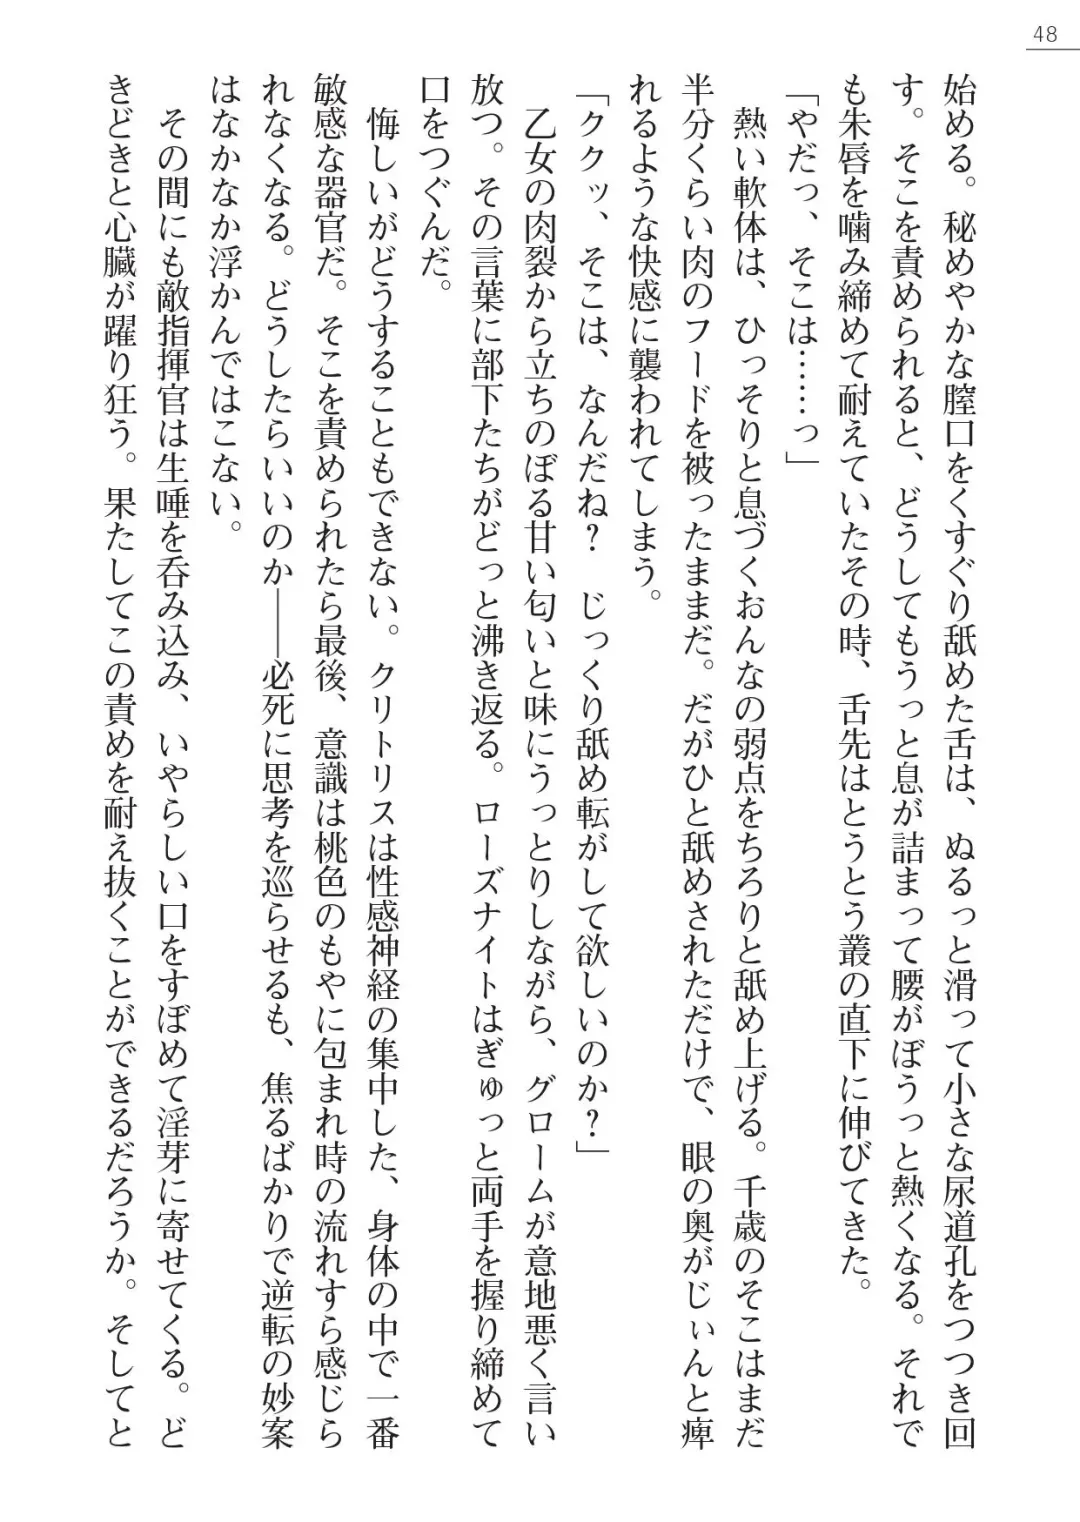 48
始める。秘めやかな膣口をくすぐり舐めた舌は、ぬるっと滑って小さな尿道孔をつつき回
す。そこを責められると、どうしてもうっと息が詰まって腰がぼうっと熱くなる。それで
も朱唇を噛み締めて耐えていたその時、舌先はとうとう叢の直下に伸びてきた。
「やだっ、そこは……っ」
熱い軟体は、ひっそりと息づくおんなの弱点をちろりと舐め上げる。千歳のそこはまだ
半分くらい肉のフードを被ったままだ。だがひと舐めされただけで、眼の奥がじぃんと痺
れるような快感に襲われてしまう。
「ククッ、そこは、なんだね？　じっくり舐め転がして欲しいのか？」
乙女の肉裂から立ちのぼる甘い匂いと味にうっとりしながら、グロームが意地悪く言い
放つ。その言葉に部下たちがどっと沸き返る。ローズナイトはぎゅっと両手を握り締めて
口をつぐんだ。
悔しいがどうすることもできない。クリトリスは性感神経の集中した、身体の中で一番
敏感な器官だ。そこを責められたら最後、意識は桃色のもやに包まれ時の流れすら感じら
れなくなる。どうしたらいいのか――必死に思考を巡らせるも、焦るばかりで逆転の妙案
はなかなか浮かんではこない。
その間にも敵指揮官は生唾を呑み込み、いやらしい口をすぼめて淫芽に寄せてくる。ど
きどきと心臓が躍り狂う。果たしてこの責めを耐え抜くことができるだろうか。そしてと